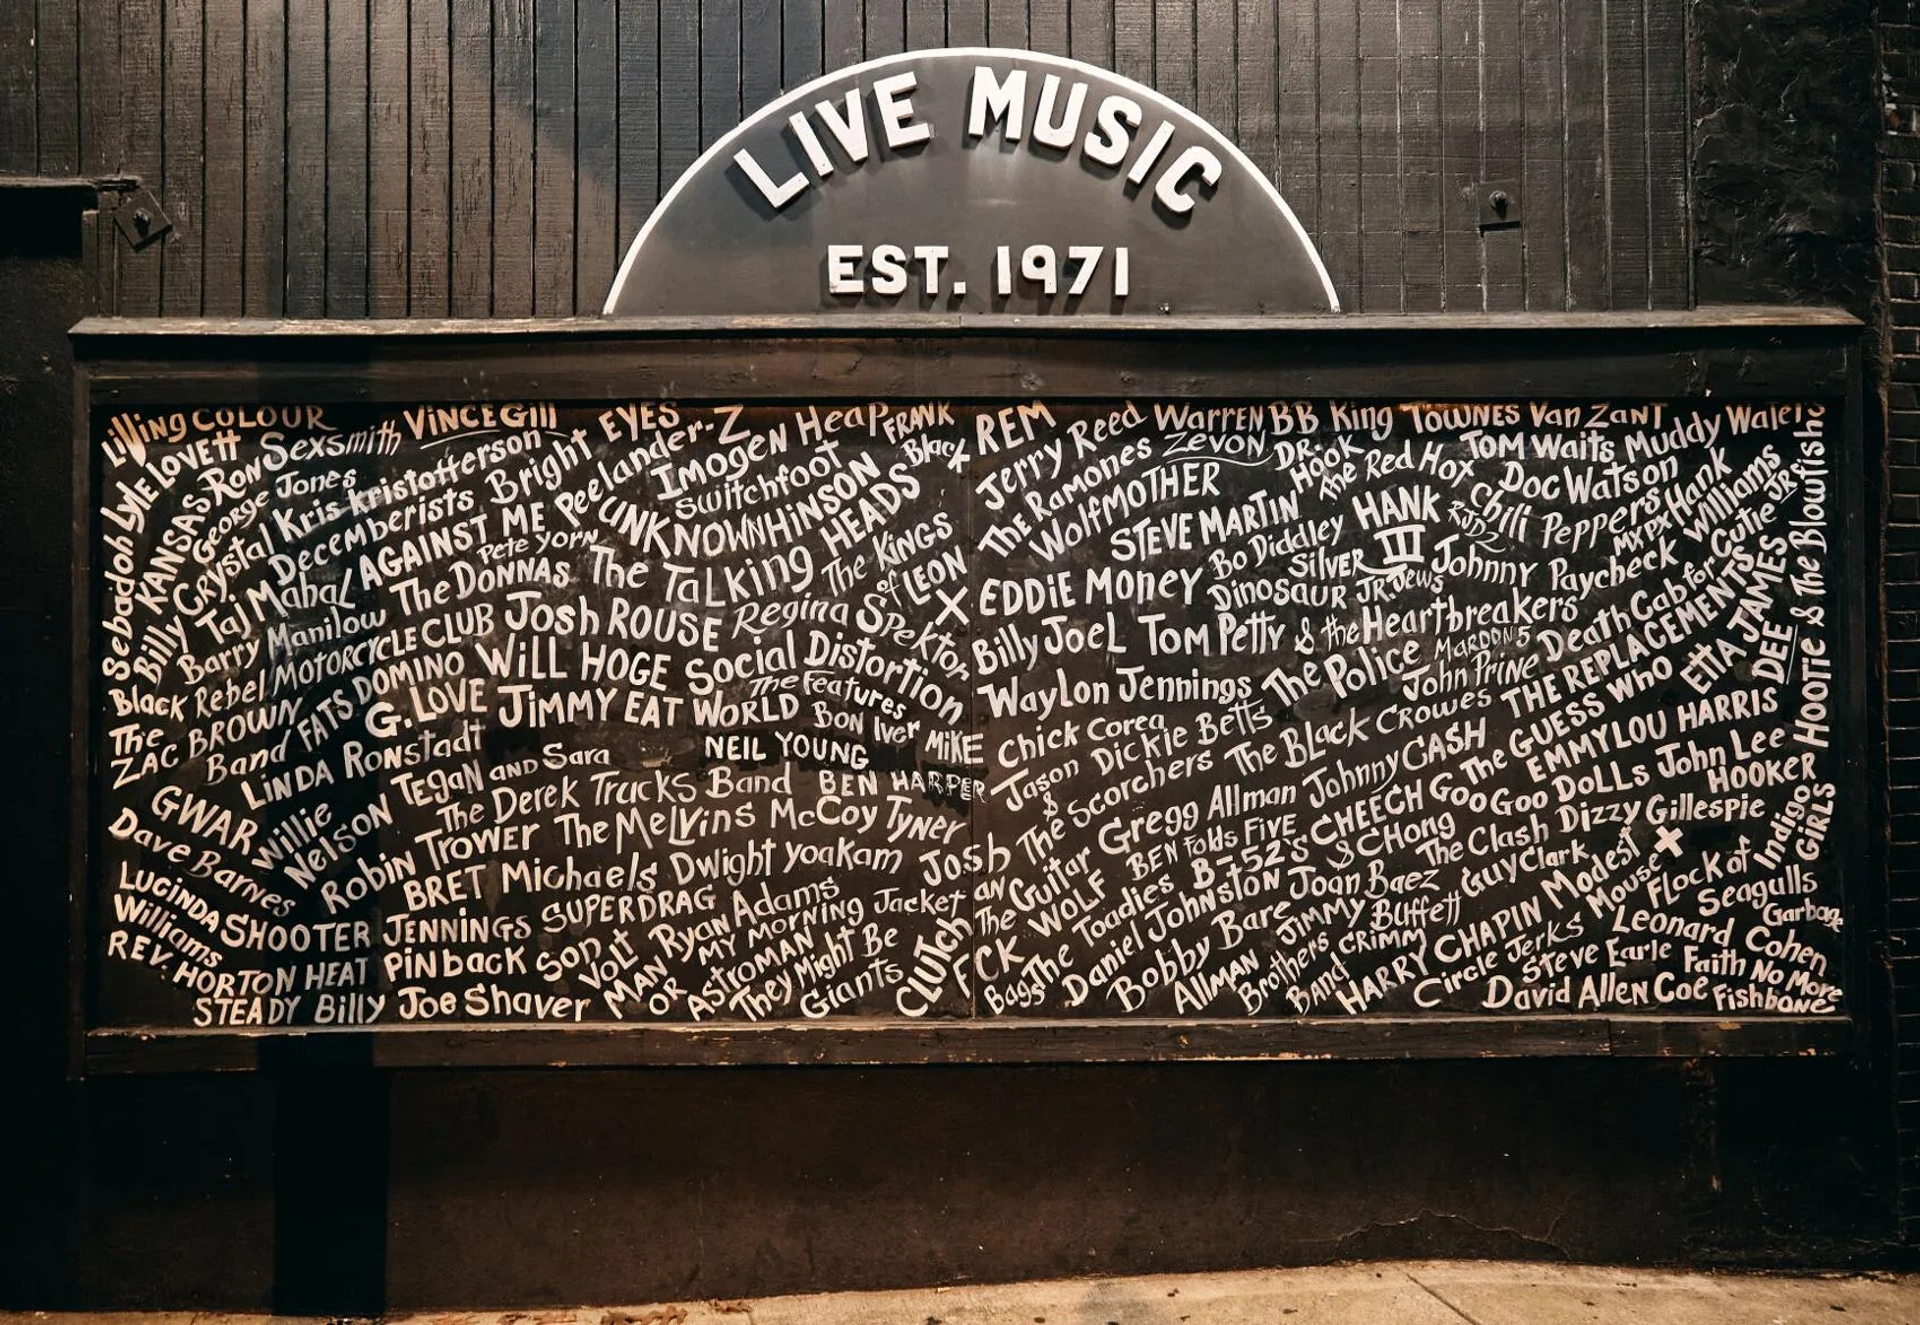 LIVE MUSIC
EST. 1971
Living COLOUR
LYLE LOVETT
Ron Sexsmith
VINCE Gill
Bright EYES
Peelander-Z
Imogen Heap
FRANK Black
Sebadoh
KANSAS
George Jones
Billy Crystal
Kris Kristofferson
Decemberists
Switchfoot
UNKNOWN HINSON
Taj Mahal
AGAINST ME
Pete Yorn
The TALKING HEADS
The KINGS of LEON
X
Barry Manilow
The DONNAS
Black Rebel MOTORCYCLE CLUB
Josh ROUSE
Regina Spektor
The
ZAC BROWN Band
FATS DOMINO
WILL HOGE
Social Distortion
G. LOVE
JIMMY EAT WORLD
The Features
BON Iver
LINDA Ronstadt
NEIL YOUNG
MIKE
GWAR
Willie NELSON
TEGAN AND Sara
The Derek Trucks Band
BEN HARPER
Dave Barnes
Robin TROWER
The MELVINS
McCoy Tyner
LUCINDA Williams
BRET Michaels
Dwight yoakam
Josh
SHOOTER JENNINGS
SUPERDRAG
Ryan Adams
REV. HORTON HEAT
PINback
Son VOLT
MY MORNING Jacket
STEADY
Billy Joe Shaver
MAN OR ASTROMAN
They Might Be Giants
CLUTCH
REM
Jerry Reed
Warren ZEVON
BB King
TOWNES Van Zant
The Ramones
DR. Hook
TOM Waits
Muddy
WolfMOTHER
The Red Hot Chili Peppers
Doc Watson
STEVE MARTIN
HANK III
RJD2
MXPX
Hank Williams JR
EDDIE MONEY
Bo Diddley
SILVER Jews
Dinosaur JR.
Johnny Paycheck
Billy JoeL
Tom Petty & the Heartbreakers
Death Cab for Cutie
Hootie & The Blowfish
WAYLON Jennings
The Police
MAROON 5
John Prine
THE REPLACEMENTS
ETTA JAMES
DEE
Chick Corea
Dickie Betts
The BLACK Crowes
The GUESS WHO
Jason & The Scorchers
Johnny CASH
EMMYLOU HARRIS
Gregg Allman
CHEECH & CHONG
Goo Goo DOLLS
John Lee HOOKER
Guitar WOLF
BEN Folds FIVE
B-52's
The Clash
Dizzy Gillespie
Indigo GIRLS
AN
The Toadies
Joan Baez
Guy Clark
Modest Mouse
X
Flock of Seagulls
The
F CK
Bags
Daniel Johnston
JIMMY BUFFETT
Garbage
Bobby Bare
CRIMM
HARRY CHAPIN
Leonard Cohen
ALLMAN Brothers Band
Circle Jerks
Steve Earle
Faith No More
David Allen Coe
Fishbone